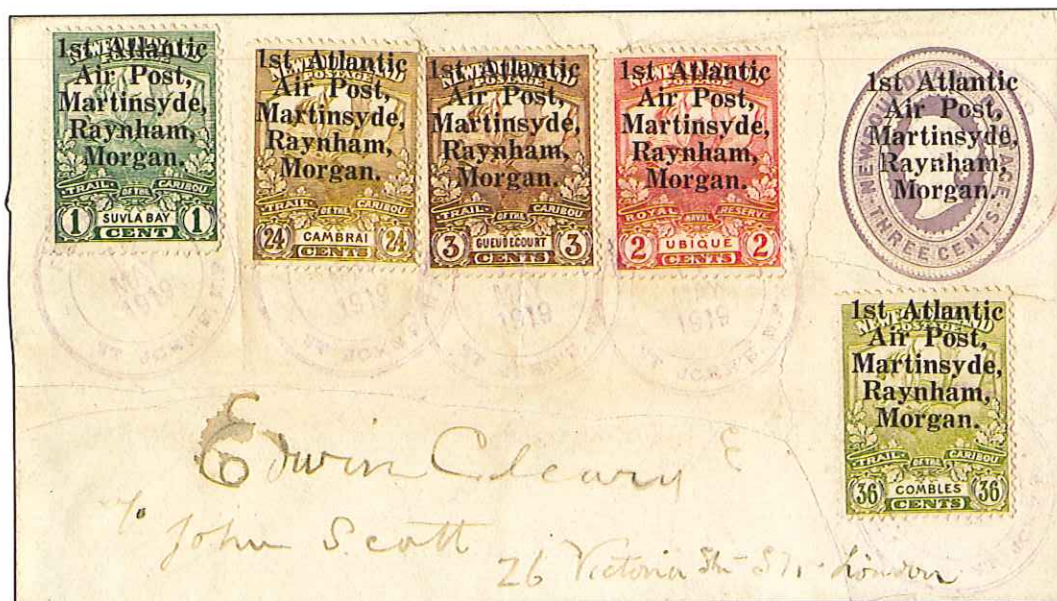 1st Atlantic
Air Post,
Martinsyde,
Raynham,
Morgan.
TRAIL OF THE CARIBOU
1 SUVLA BAY 1
CENT
1st Atlantic
Air Post,
Martinsyde,
Raynham,
Morgan.
NEWFOUNDLAND
POSTAGE
TRAIL OF THE CARIBOU
24 CAMBRAI 24
CENTS
1st Atlantic
Air Post,
Martinsyde,
Raynham,
Morgan.
NEWFOUNDLAND
POSTAGE
TRAIL OF THE CARIBOU
3 GUEUDECOURT 3
CENTS
1st Atlantic
Air Post,
Martinsyde,
Raynham,
Morgan.
NEWFOUNDLAND
POSTAGE
ROYAL NAVAL RESERVE
2 UBIQUE 2
CENTS
1st Atlantic
Air Post,
Martinsyde,
Raynham,
Morgan.
NEWFOUNDLAND POSTAGE
THREE CENTS
1st Atlantic
Air Post,
Martinsyde,
Raynham,
Morgan.
NEWFOUNDLAND
POSTAGE
TRAIL OF THE CARIBOU
36 COMBLES 36
CENTS
1919
1919
MAY
1919
1919
Edwin Cleary
John Scott
26 Victoria St. London